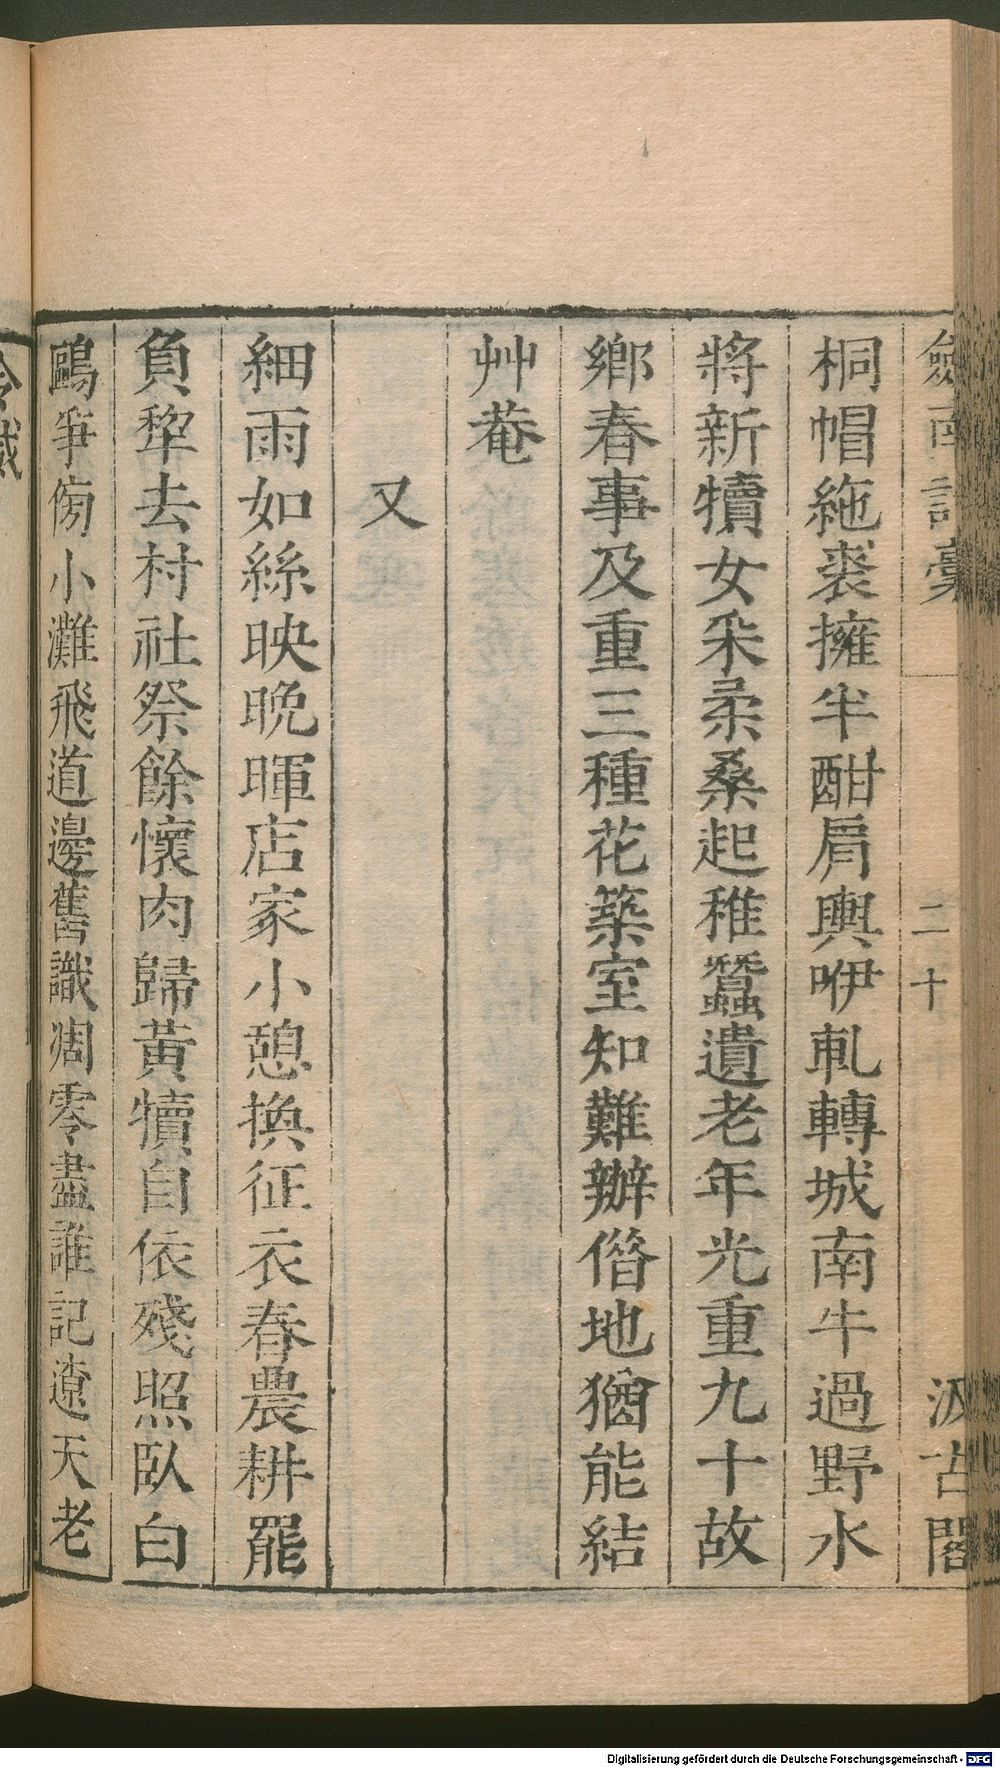 劍南詩稾 二十 汲古閣
桐帽絁裘擁半酣肩輿咿軋轉城南牛過野水
將新犢女采柔桑起稚蠶遺老年光重九十故
鄉春事及重三種花築室知難辦僭地猶能結
艸菴
又
細雨如絲映晚暉店家小憩換征衣春農耕罷
負犂去村社祭餘懷肉歸黃犢自依殘照臥白
鷗爭傍小灘飛道邊舊識凋零盡誰記遼天老
令威
Digitalisierung gefördert durch die Deutsche Forschungsgemeinschaft - DFG